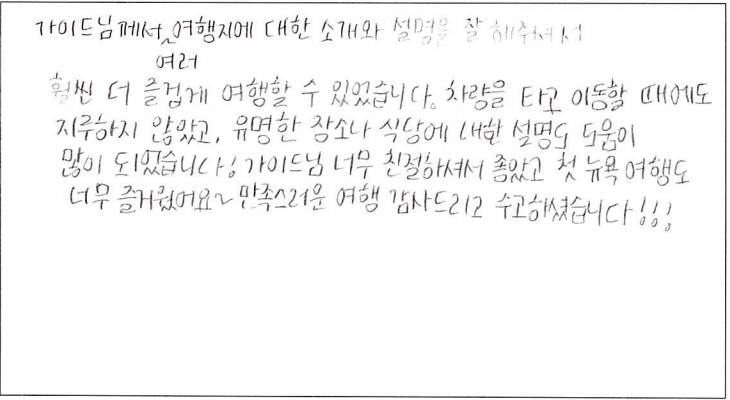 가이드님께서 여러 여행지에 대한 소개와 설명을 잘 해주셔서
훨씬 더 즐겁게 여행할 수 있었습니다. 차량을 타고 이동할 때에도
지루하지 않았고, 유명한 장소나 식당에 대한 설명도 도움이
많이 되었습니다! 가이드님 너무 친절하셔서 좋았고 첫 뉴욕 여행도
너무 즐거웠어요~ 만족스러운 여행 감사드리고 수고하셨습니다!!!